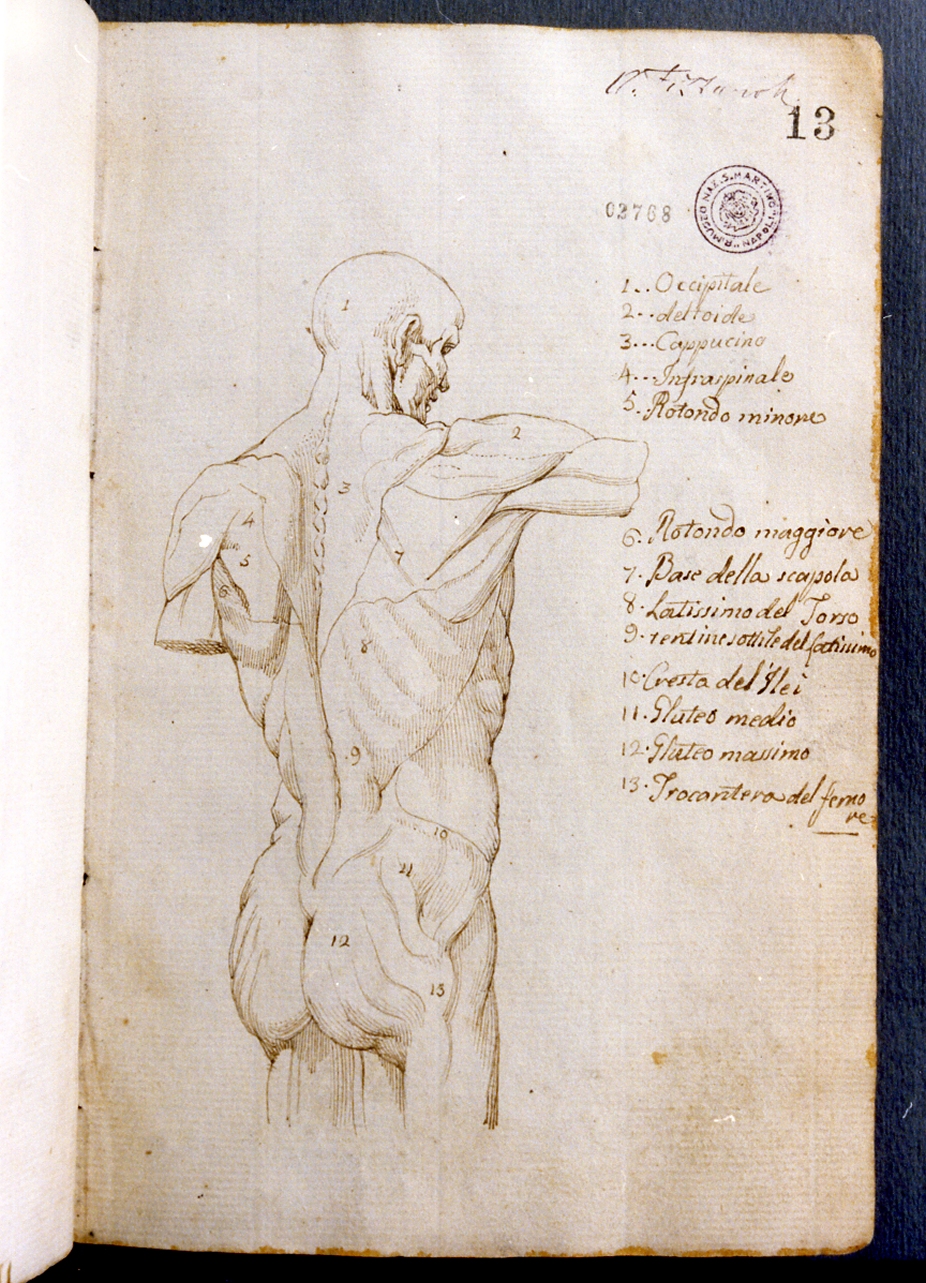 13
02768
R. MUSEO NAZ. S. MARTINO NAPOLI
1.. Occipitale
2.. deltoide
3... Cappucino
4... Infraspinale
5. Rotondo minore
6. Rotondo maggiore
7. Base della scapola
8. Latissimo del Torso
9. sottile del latissimo
10. Cresta del'Ilei
11. Gluteo medio
12. Gluteo massimo
13. Trocantera del femo
re
1
2
3
4
5
6
7
8
9
10
11
12
13